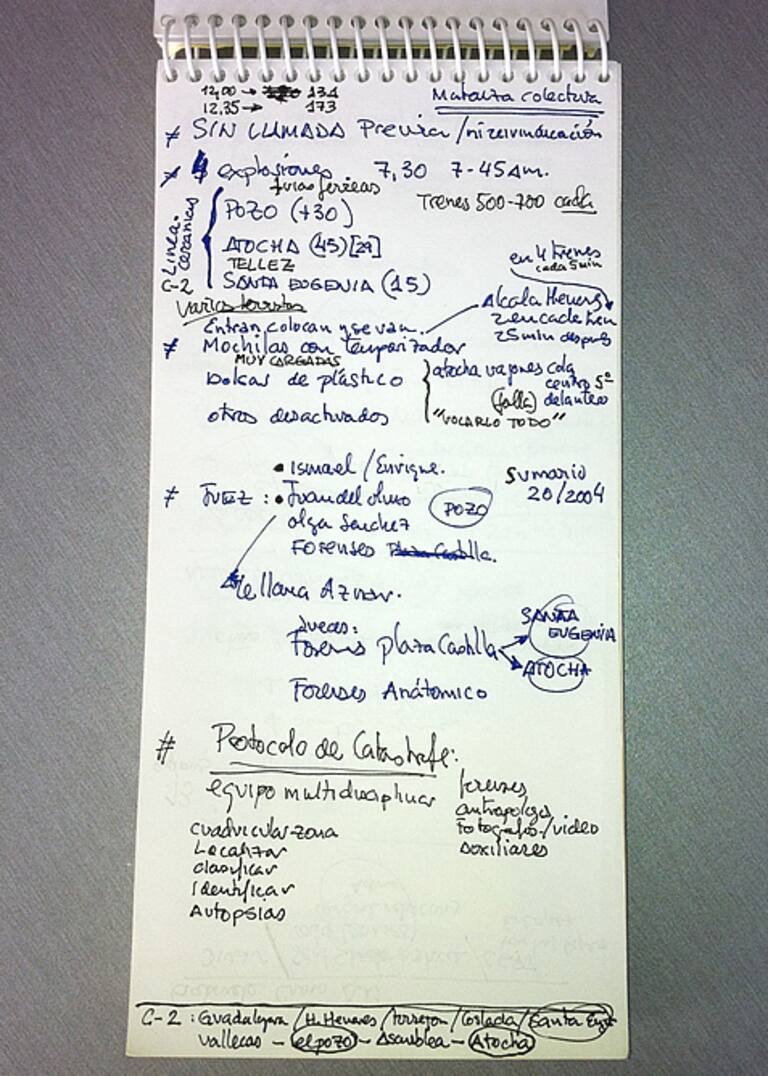 12,00 → 131
12,35 → 173
Matanza colectiva
≠ SIN LLAMADA Previa / ni reivindicación
≠ 4 explosiones 7,30 7-45 am.
4 vias ferreas
Trenes 500-700 cada
Linea. cercanias C-2
POZO (+30)
ATOCHA (45) [29]
TELLEZ
SANTA EUGENIA (15)
en 4 trenes
cada 5 min
Varios terroristas
Entran, colocan y se van.
Alcala Henares
2 en cada tren
25 min después
≠ Mochilas con temporizador
MUY CARGADAS
bolsas de plástico
otros desactivados
atocha vagones cola
centro 5º
(falla) delantero
"VOLARLO TODO"
• Ismael / Enrique.
Sumario
20/2004
≠ JUEZ : • Juan del Olmo
POZO
Olga Sanchez
FORENSES
le llama Aznar.
Jueces:
Forenses plaza Castilla
SANTA
EUGENIA
ATOCHA
Forenses Anátomico
# Protocolo de Catastrofe:
equipo multidisciplinar
forenses
antropologos
fotografos / video
auxiliares
cuadricular zona
Localizar
clasificar
Identificar
Autopsias
C-2 : Guadalajara / A. Henares / Torrejon / Coslada / Santa Eug.
Vallecas - el pozo - Asamblea - Atocha